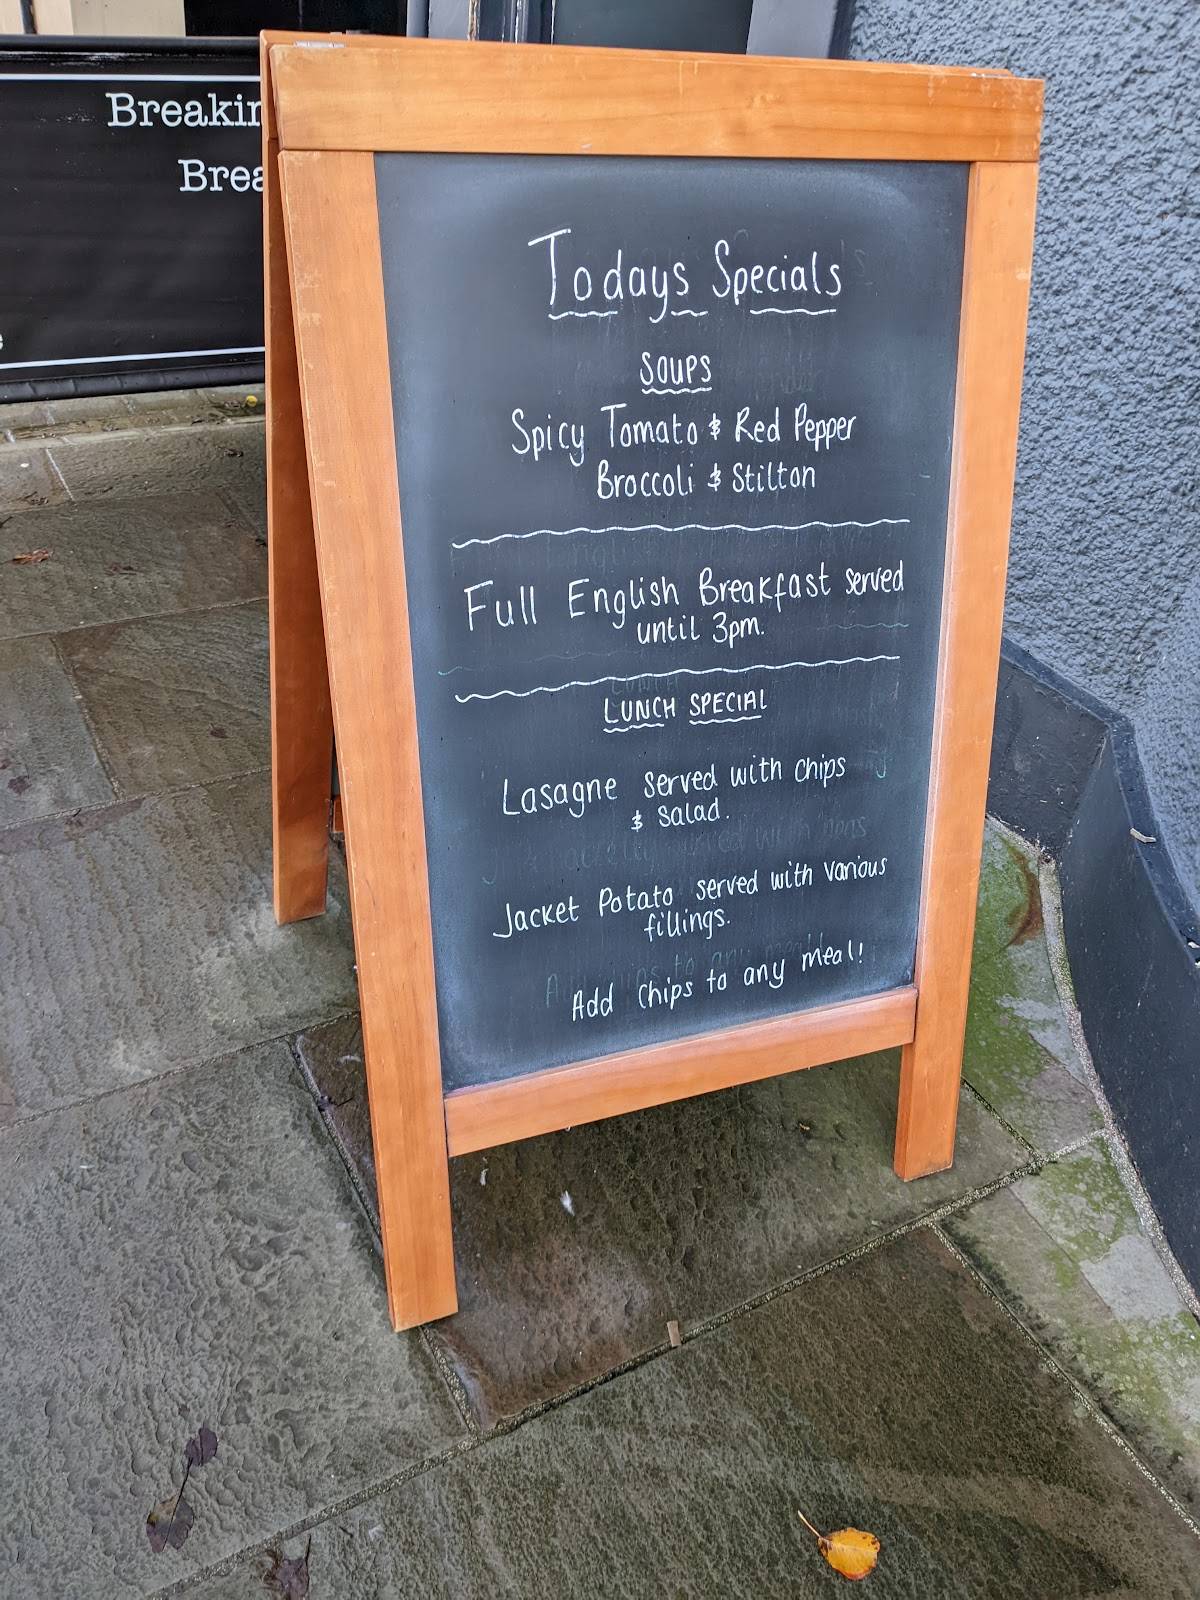 Breakin
Brea
Todays Specials
SOUPS
Spicy Tomato & Red Pepper
Broccoli & Stilton
Full English Breakfast served
until 3pm.
LUNCH SPECIAL
Lasagne served with chips
& salad.
Jacket Potato served with various
fillings.
Add chips to any meal!